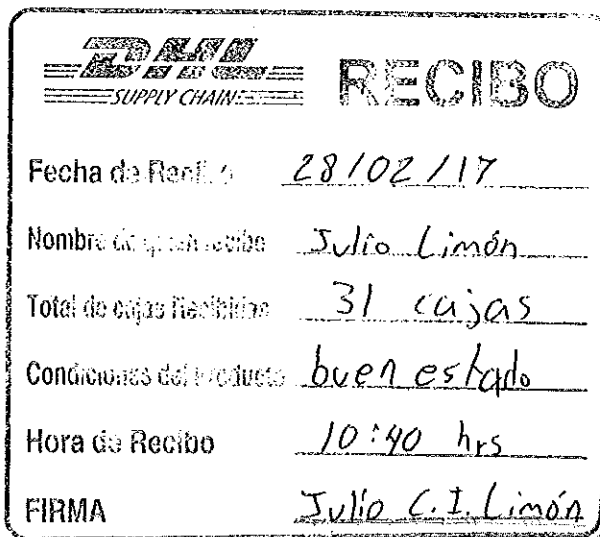 DHL RECIBO
SUPPLY CHAIN
Fecha de Recibo 28/02/17
Nombre de quien recibe Julio Limón
Total de cajas Recibidas 31 cajas
Condiciones del Producto buen estado
Hora de Recibo 10:40 hrs
FIRMA Julio C. I. Limón